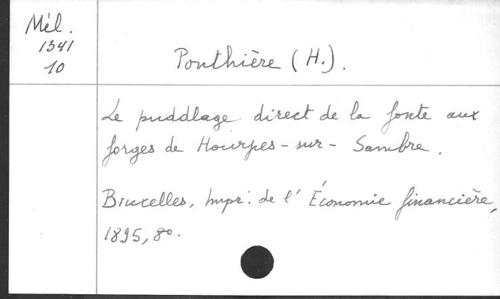 Mél.
1341
10
Ponthière (H.).
Le puddlage direct de la fonte aux
forges de Hourpes-sur-Sambre.
Bruxelles, Impr. de l'Économie financière,
1895, 8o.